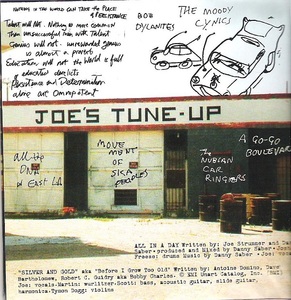 NOTHING IN THE WORLD CAN TAKE THE PLACE
of PERSISTENCE
Talent will Not - Nothing is more common
than unsuccessful men with Talent
Genius will not - unrewarded genius
is almost a proverb
Education will not the World is full
of educated derelicts
Persistence and Determination
alone are Omnipotent
BOB
DYLANITES
THE MOODY
CYNICS
JOE'S TUNE-UP
MOVE
MENT
OF
SKA
PEOPLES
The
NUBIAN
CAR
RINGERS
A GO-GO
BOULEVAR
ALL IN A DAY Written by: Joe Strummer and Dan
Saber-produced and Mixed by Danny Saber-
drums Music by Danny Saber-
"SILVER AND GOLD" aka "Before I Grow Too Old" Written by: Antoine Domino, Dave
Bartholomew, Robert C. Guidry aka Bobby Charles. © EMI Unart Catalog, Inc. (BMI)
Joe: vocals.Martin: wurlitzer.Scott: bass, acoustic guitar, slide guitar,
harmonica.Tymon Dogg: violins